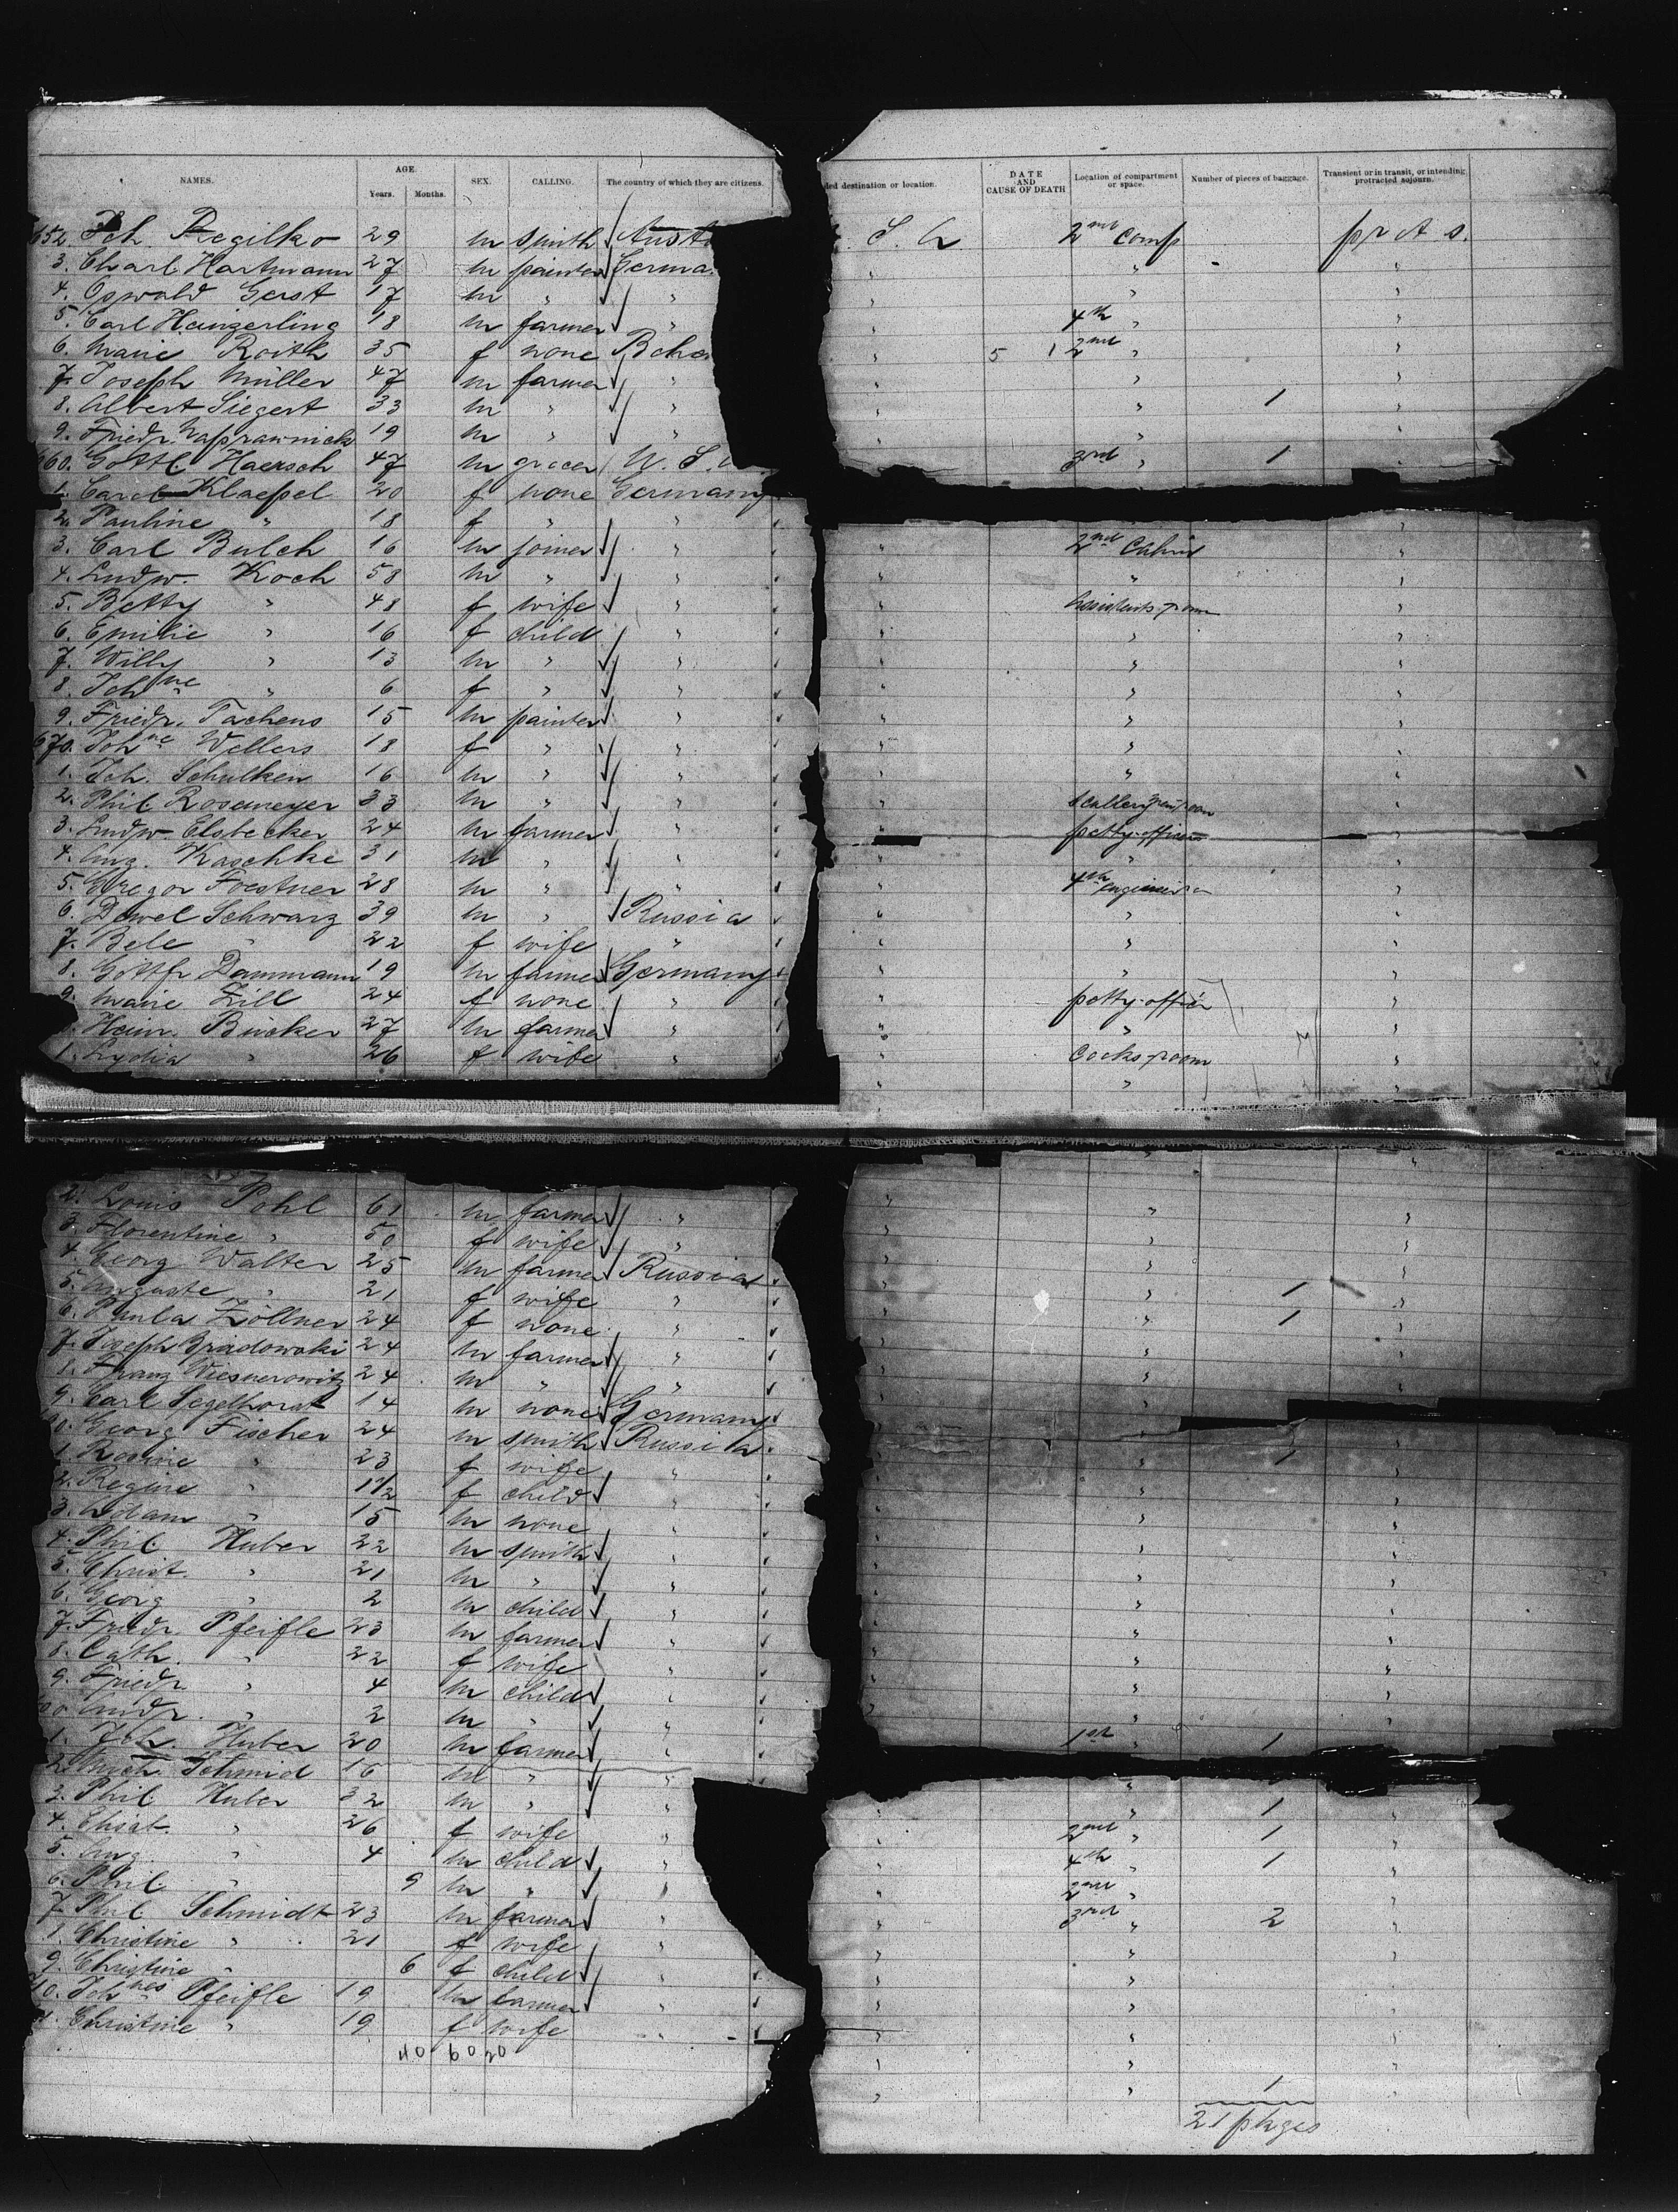 NAMES. AGE. Years. Months. SEX. CALLING. The country of which they are citizens.
652. Joh. 29 m smith Aust
3. Charl. Hartmann 27 m painter Germa
4. Oswald Gerst 17 m " "
5. Carl Heinzerling 18 m farmer "
6. Marie Roith 35 f none Bohe
7. Joseph Müller 47 m farmer "
8. Albert Siegert 33 m " "
9. Friedr. Naprawnick 19 m " "
660. Gottl. Haersch 47 m grocer U. S.
1. Carol. Klaepel 20 f none Germany
2. Pauline " 18 f " "
3. Carl Bulch 16 m joiner "
4. Ludw. Koch 58 m " "
5. Betty " 48 f wife "
6. Emilie " 16 f child "
7. Willy " 13 m " "
8. Johne " 6 f " "
9. Friedr. Tachens 15 m painter "
670. Johne Wellers 18 f " "
1. Joh. Schulken 16 m " "
2. Phil. Rosemeyer 33 m " "
3. Ludw. Elsbecker 24 m farmer "
4. Aug. Kaschke 31 m " "
5. Gregor Foestner 28 m " "
6. Dawel Schwarz 39 m " Russia
7. Bele " 22 f wife "
8. Gottfr. Dammann 19 m farmer Germany
9. Marie Zill 24 f none "
Heinr. Bücker 27 m farmer "
1. Lydia " 26 f wife "
2. Louis Pohl 61 m farmer "
3. Florentine " 50 f wife "
4. Georg Walter 25 m farmer Russia
5. Auguste " 21 f wife "
6. Paula Zöllner 24 f none "
7. Joseph 24 m farmer "
8. Franz Wiesnerowitz 24 m " "
9. Carl Segelhorst 14 m none Germany
0. Georg Fischer 24 m smith Russia
1. Rosine " 23 f wife "
2. Regine " 1 1/2 f child "
3. Adam " 15 m none "
4. Phil. Huber 22 m smith "
5. Christ. " 21 m " "
6. Georg " 2 m child "
7. Friedr. Pfeifle 23 m farmer "
8. Cath. " 22 f wife "
9. Friedr. " 4 m child "
00 Andr. " 2 m " "
1. Joh. Huber 20 m farmer "
2. Mich. Schmid 16 m " "
3. Phil. Huber 32 m " "
4. Christ. " 26 f wife "
5. Aug. " 4 m child "
6. Phil. " 9 m " "
7. Phil. Schmidt 23 m farmer "
8. Christine " 21 f wife "
9. Christine " 6 f child "
10. Johnes Pfeifle 19 m farmer "
Christine " 19 f wife "
ded destination or location. DATE AND CAUSE OF DEATH Location of compartment or space. Number of pieces of baggage. Transient or in transit, or intending protracted sojourn.
2nd comp
" " "
" " "
" 4th " "
" 5 1 2nd " "
" " "
" " 1 "
" " "
3rd " 1 "
" 2nd Cabin "
" " "
" room "
" " "
" " "
" " "
" " "
" " "
" " "
"
" petty-officers "
" " "
" 4th engineers "
" " "
" " "
" " "
" petty-officer "
" " "
" Cooks-room "
" " "
" " "
" " "
" " "
" " 1 "
" " 1 "
" " "
" " "
" " 1 "
" " "
" " "
" " "
" " "
" " "
1st " 1
" " 1 "
" 2nd " 1 "
" 4th " 1 "
" 2nd " "
" 3rd " 2 "
" " "
" " "
" " "
" " "
" " "
" " 1 "
21 pkges